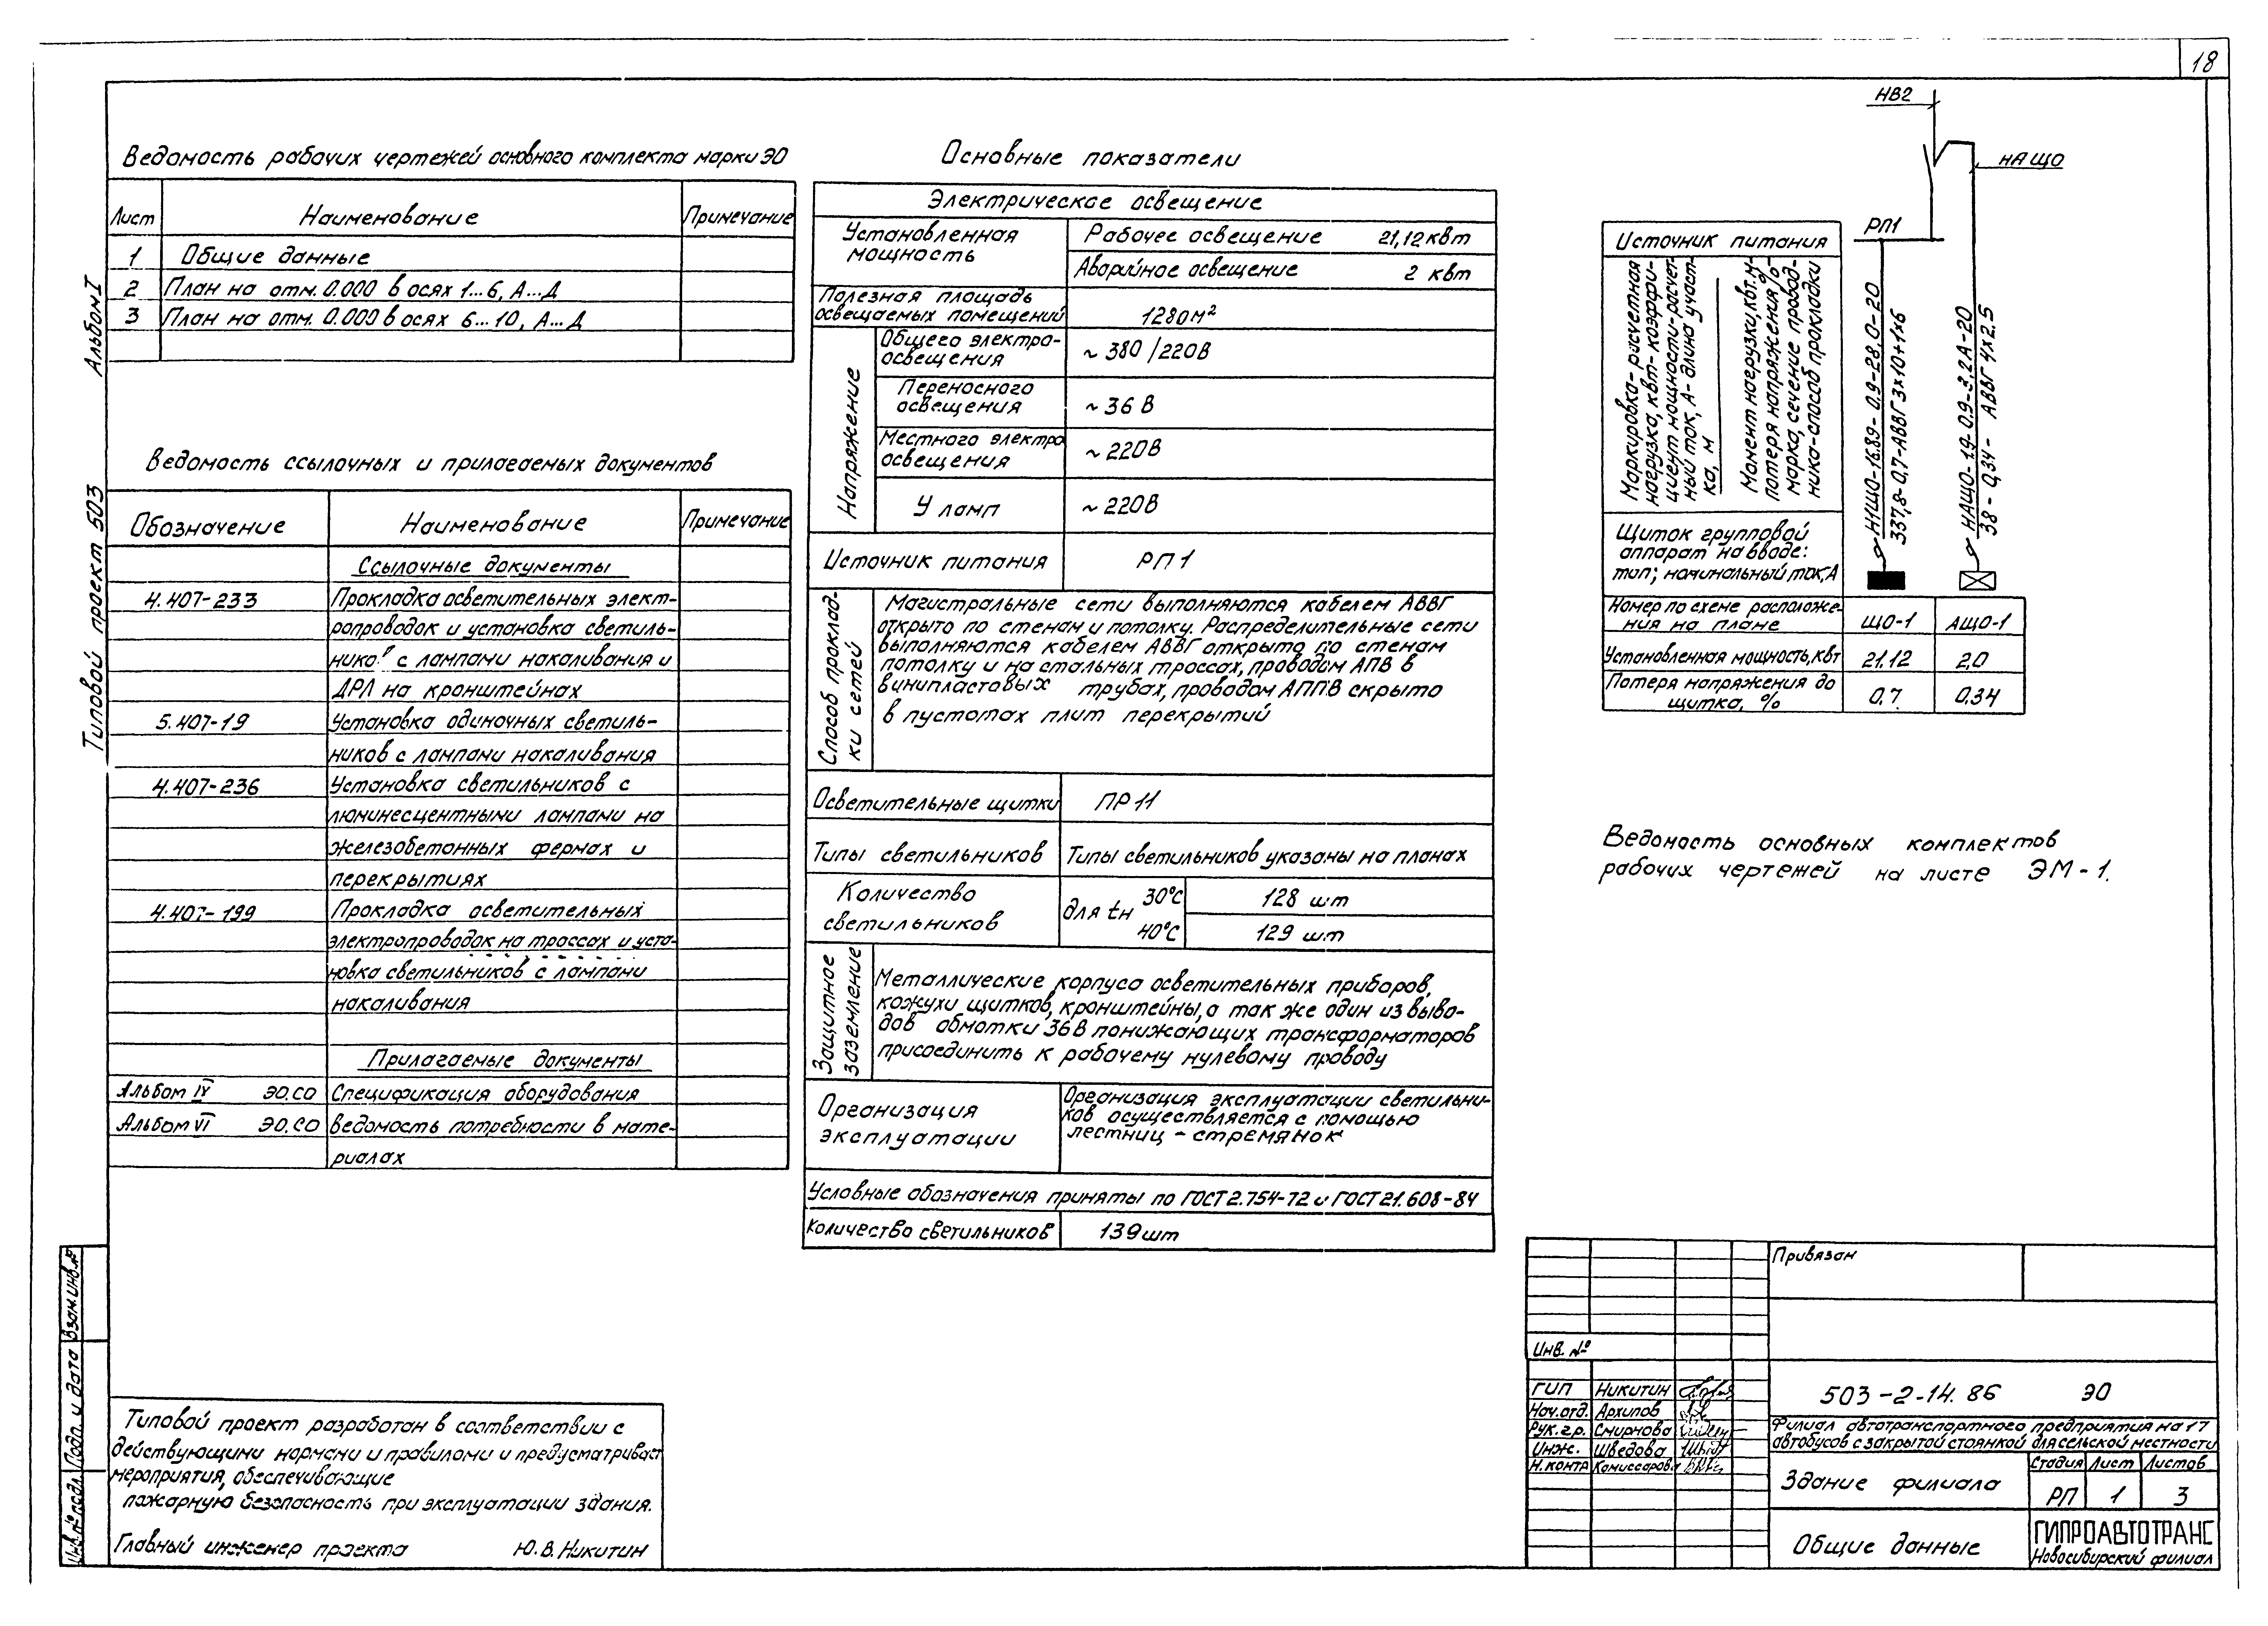 18
Альбом I
Типовой проект 503
Ведомость рабочих чертежей основного комплекта марки ЭО
Лист Наименование Примечание
1 Общие данные
2 План на отм. 0.000 в осях 1...6, А...Д
3 План на отм. 0.000 в осях 6...10, А...Д
Ведомость ссылочных и прилагаемых документов
Обозначение Наименование Примечание
Ссылочные документы
4.407-233 Прокладка осветительных элект-
ропроводок и установка светиль-
ников с лампами накаливания и
ДРЛ на кронштейнах
5.407-19 Установка одиночных светиль-
ников с лампами накаливания
4.407-236 Установка светильников с
люминесцентными лампами на
железобетонных фермах и
перекрытиях
4.407-199 Прокладка осветительных
электропроводок на троссах и уста-
новка светильников с лампами
накаливания
Прилагаемые документы
Альбом IV ЭО.СО Спецификация оборудования
Альбом VI ЭО.СО Ведомость потребности в мате-
риалах
Основные показатели
Электрическое освещение
Установленная мощность
Рабочее освещение 21,12 квт
Аварийное освещение 2 квт
Полезная площадь
освещаемых помещений 1280м²
Напряжение
Общего электро-
освещения ~380/220В
Переносного
освещения ~36В
Местного электро
освещения ~220В
У ламп ~220В
Источник питания РП1
Способ проклад-
ки сетей
Магистральные сети выполняются кабелем АВВГ
открыто по стенам и потолку. Распределительные сети
выполняются кабелем АВВГ открыто по стенам
потолку и на стальных троссах, проводом АПВ в
винипластовых трубах, проводом АППВ скрыто
в пустотах плит перекрытий
Осветительные щитки ПР11
Типы светильников Типы светильников указаны на планах
Количество
светильников
для tн 30°С 128 шт
40°С 129 шт
Защитное
заземление
Металлические корпуса осветительных приборов,
кожухи щитков, кронштейны, а так же один из выво-
дов обмотки 36В понижающих трансформаторов
присоединить к рабочему нулевому проводу
Организация
эксплуатации
Организация эксплуатации светильни-
ков осуществляется с помощью
лестниц-стремянок
Условные обозначения приняты по ГОСТ 2.754-72 и ГОСТ 21.608-84
Количество светильников 139шт
НВ2
нАЩО
РП1
Источник питания
Маркировка-расчетная
нагрузка, квт-коэффи-
циент мощности-расчет-
ный ток, А-длина участ-
ка, м
Момент нагрузки, квт.м-
потеря напряжения %-
марка, сечение провод-
ника-способ прокладки
Н1ЩО-16.89-0.9-28,0-20
337,8-0,7-АВВГ 3х10+1х6
НАЩО-1.9-0.9-3,2А-20
38-0,34- АВВГ 4х2.5
Щиток групповой
аппарат на вводе:
тип; номинальный ток, А
Номер по схеме расположе-
ния на плане ЩО-1 АЩО-1
Установленная мощность, квт 21.12 2,0
Потеря напряжения до
щитка, % 0,7 0.34
Ведомость основных комплектов
рабочих чертежей на листе ЭМ-1.
Типовой проект разработан в соответствии с
действующими нормами и правилами и предусматривает
мероприятия, обеспечивающие
пожарную безопасность при эксплуатации здания.
Главный инженер проекта Ю.В. Никитин
Взам.инв.№
Подп. и дата
Инв.№ подл.
Привязан
Инв. №
ГИП Никитин
Нач.отд. Архипов
Рук.гр. Смирнова
Инж. Шведова
Н.контр Комиссарова
503-2-14.86 ЭО
Филиал автотранспортного предприятия на 17
автобусов с закрытой стоянкой для сельской местности
Здание филиала
Стадия Лист Листов
РП 1 3
Общие данные
ГИПРОАВТОТРАНС
Новосибирский филиал